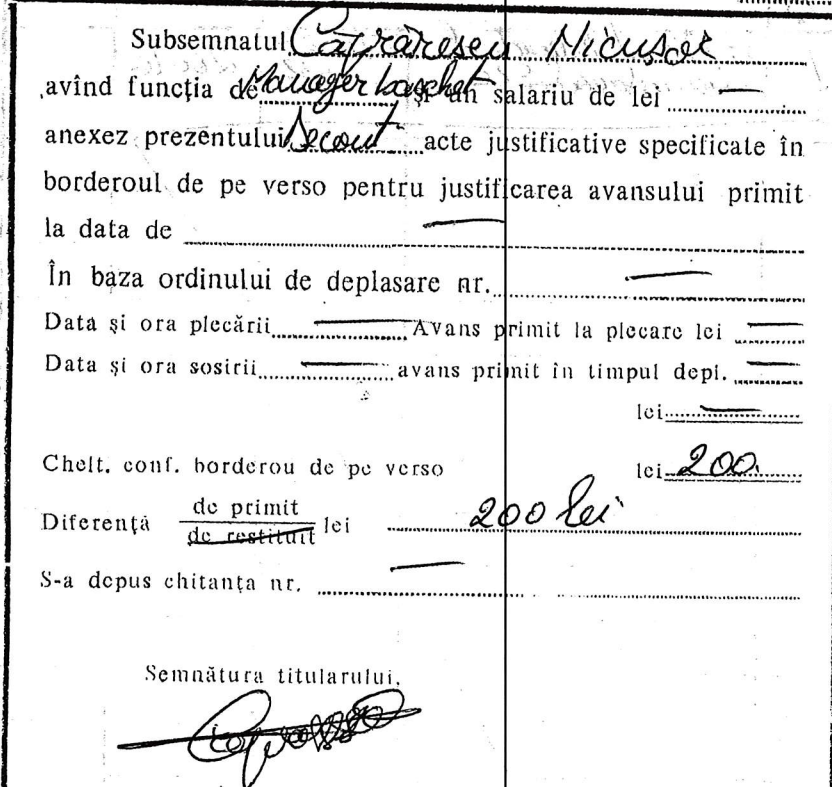 Subsemnatul Căprărescu Nicușor
avînd funcția de Manager baschet și un salariu de lei —
anexez prezentului Decont acte justificative specificate în
borderoul de pe verso pentru justificarea avansului primit
la data de —
În baza ordinului de deplasare nr. —
Data și ora plecării — Avans primit la plecare lei —
Data și ora sosirii — avans primit în timpul depl. —
lei —
Chelt. conf. borderou de pe verso lei 200
Diferență de primit
de restituit lei 200 lei
S-a depus chitanța nr. —
Semnătura titularului,